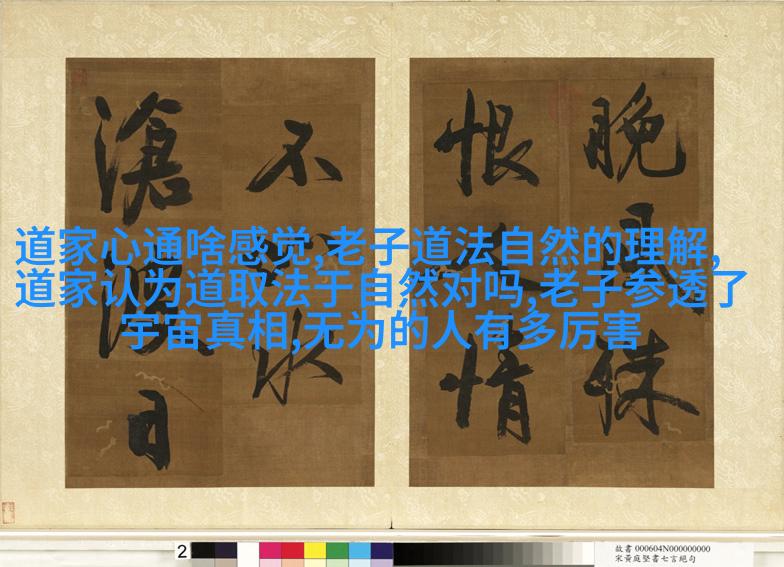 晚
恨
情
不
水
滄浪日
道家心通啥感觉,老子道法自然的理解,
道家认为道取法于自然对吗,老子参透了
宇宙真相,无为的人有多厉害
2
故書 000604N000000000
宋黃庭堅書七言絕句